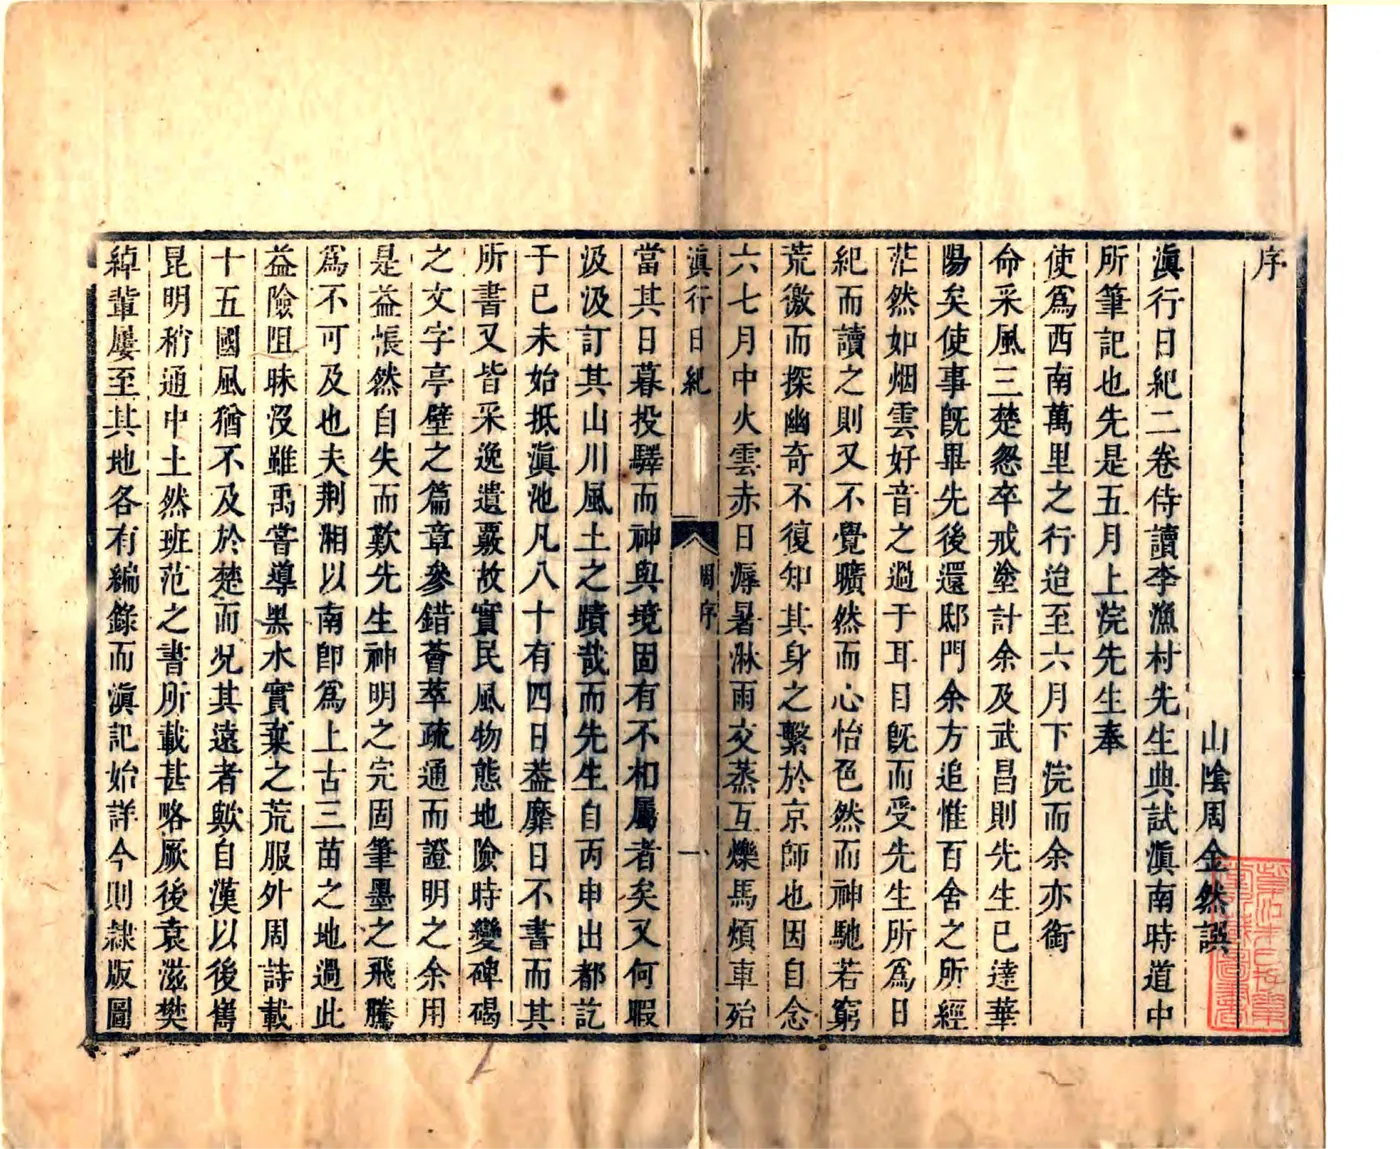 序
山陰周金然譔
滇行日紀二卷侍讀李漁村先生典試滇南時道中
所筆記也先是五月上浣先生奉
使爲西南萬里之行迨至六月下浣而余亦銜
命采風三楚怱卒戒塗計余及武昌則先生已達華
陽矣使事旣畢先後還邸門余方追惟百舍之所經
茫然如烟雲好音之過于耳目旣而受先生所爲日
紀而讀之則又不覺曠然而心怡色然而神馳若窮
荒徼而探幽奇不復知其身之繫於京師也因自念
六七月中火雲赤日溽暑淋雨交蒸互爍馬煩車殆
滇行日紀 周序 一
當其日暮投驛而神與境固有不相屬者矣又何暇
汲汲訂其山川風土之蹟哉而先生自丙申出都訖
于已未始抵滇池凡八十有四日葢靡日不書而其
所書又皆采逸遺覈故實民風物態地險時變碑碣
之文字亭壁之篇章參錯薈萃疏通而證明之余用
是益悵然自失而歎先生神明之完固筆墨之飛騰
爲不可及也夫荆湘以南卽爲上古三苗之地過此
益險阻昧沒雖禹嘗導黑水實棄之荒服外周詩載
十五國風猶不及於楚而况其遠者歟自漢以後雋
昆明稍通中土然班范之書所載甚略厥後袁滋樊
綽輩屢至其地各有編錄而滇記始詳今則隸版圖